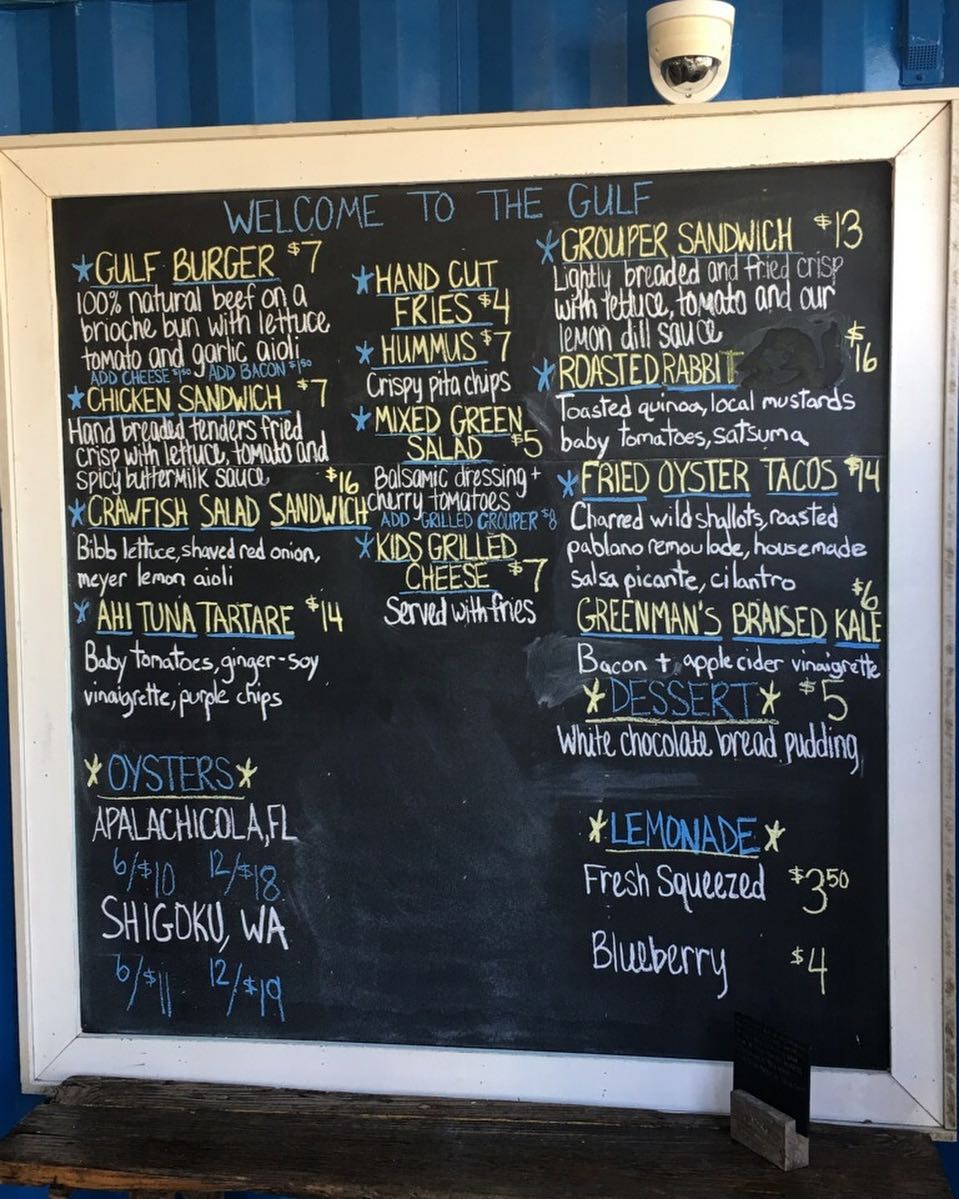 WELCOME TO THE GULF
*GULF BURGER $7
100% natural beef on a
brioche bun with lettuce
tomato and garlic aioli
ADD CHEESE $1.50 ADD BACON $1.50
*CHICKEN SANDWICH $7
Hand breaded tenders fried
crisp with lettuce, tomato and
spicy buttermilk sauce
$16
*CRAWFISH SALAD SANDWICH
Bibb lettuce, shaved red onion,
meyer lemon aioli
*AHI TUNA TARTARE $14
Baby tomatoes, ginger-soy
vinaigrette, purple chips
*OYSTERS*
APALACHICOLA, FL
6/$10 12/$18
SHIGOKU, WA
6/$11 12/$19
*HAND CUT
FRIES $4
*HUMMUS $7
Crispy pita chips
*MIXED GREEN
SALAD $5
Balsamic dressing +
cherry tomatoes
ADD GRILLED GROUPER $8
*KIDS GRILLED
CHEESE $7
Served with fries
*GROUPER SANDWICH $13
Lightly breaded and fried crisp
with lettuce, tomato and our
lemon dill sauce
$16
*ROASTED RABBIT
Toasted quinoa, local mustards
baby tomatoes, satsuma
*FRIED OYSTER TACOS $14
Charred wild shallots, roasted
pablano remoulade, housemade
salsa picante, cilantro
$6
GREENMAN'S BRAISED KALE
Bacon + apple cider vinaigrette
*DESSERT* $5
White chocolate bread pudding
*LEMONADE*
Fresh Squeezed $3.50
Blueberry $4